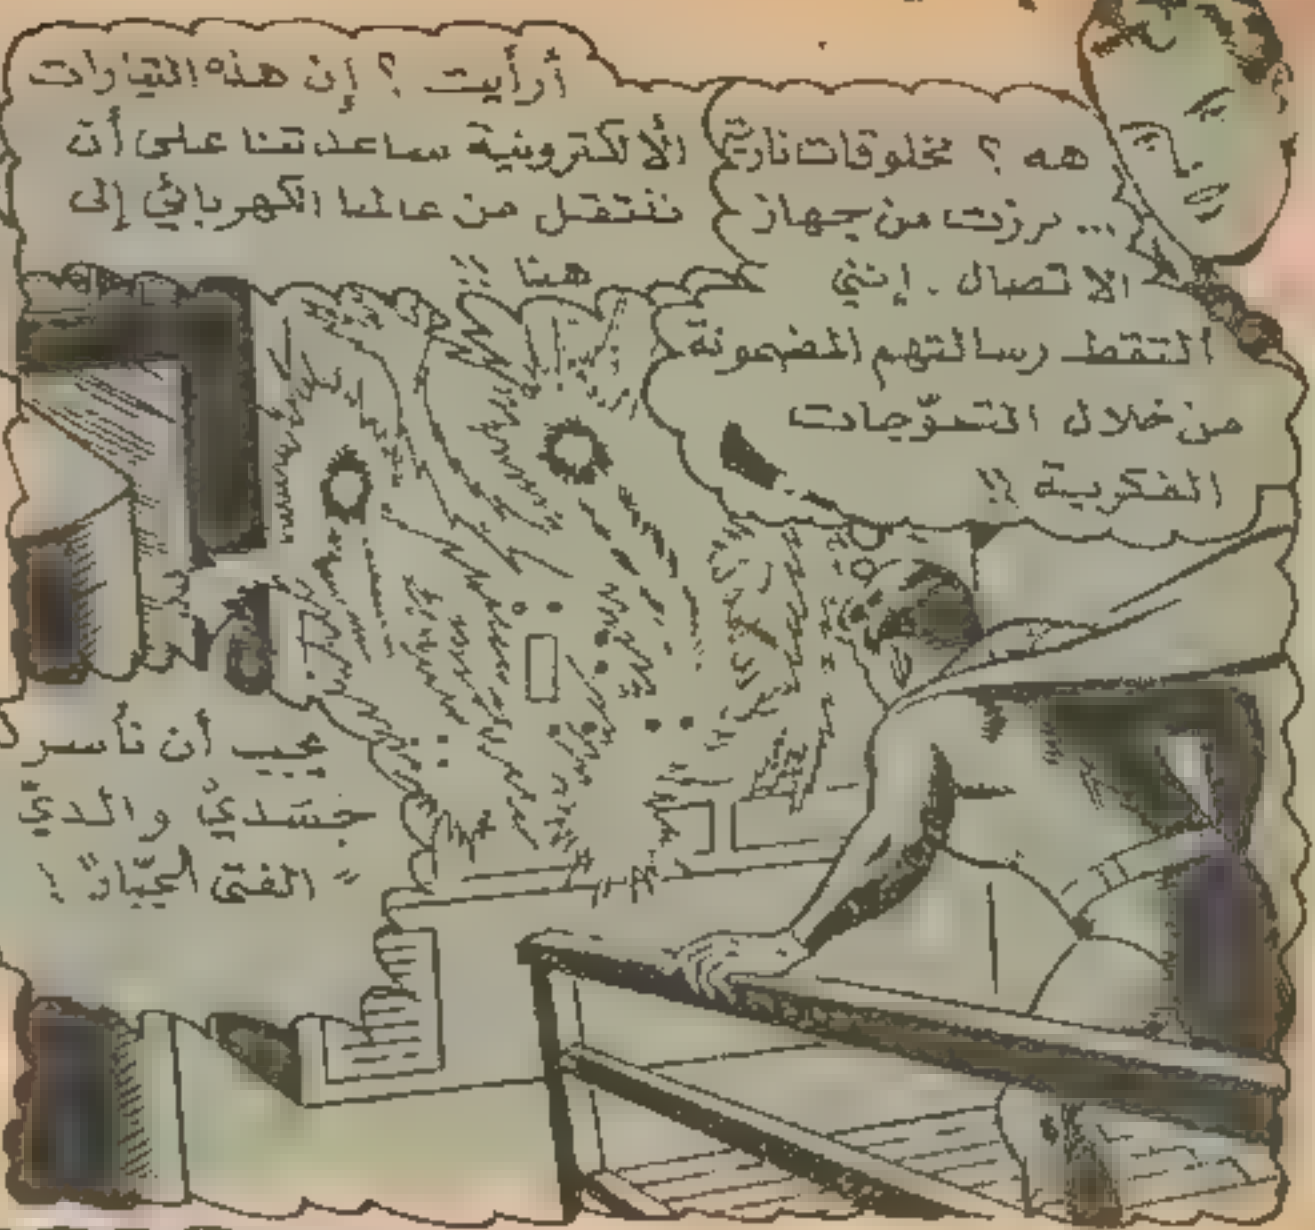 هه ؟ مخلوقات ناريّة
... برزت من جهاز
الاتصال . إنني
التقط رسالتهم المضمونة
من خلال التموّجات
الفكرية !!
أرأيت ؟ إن هذه التيارات
الألكترونية ساعدتنا على أن
ننتقل من عالمنا الكهربائيّ إلى
هنا !!
يجب أن نأسر
جسَديّ والديّ
" الفتى الجبّار " !